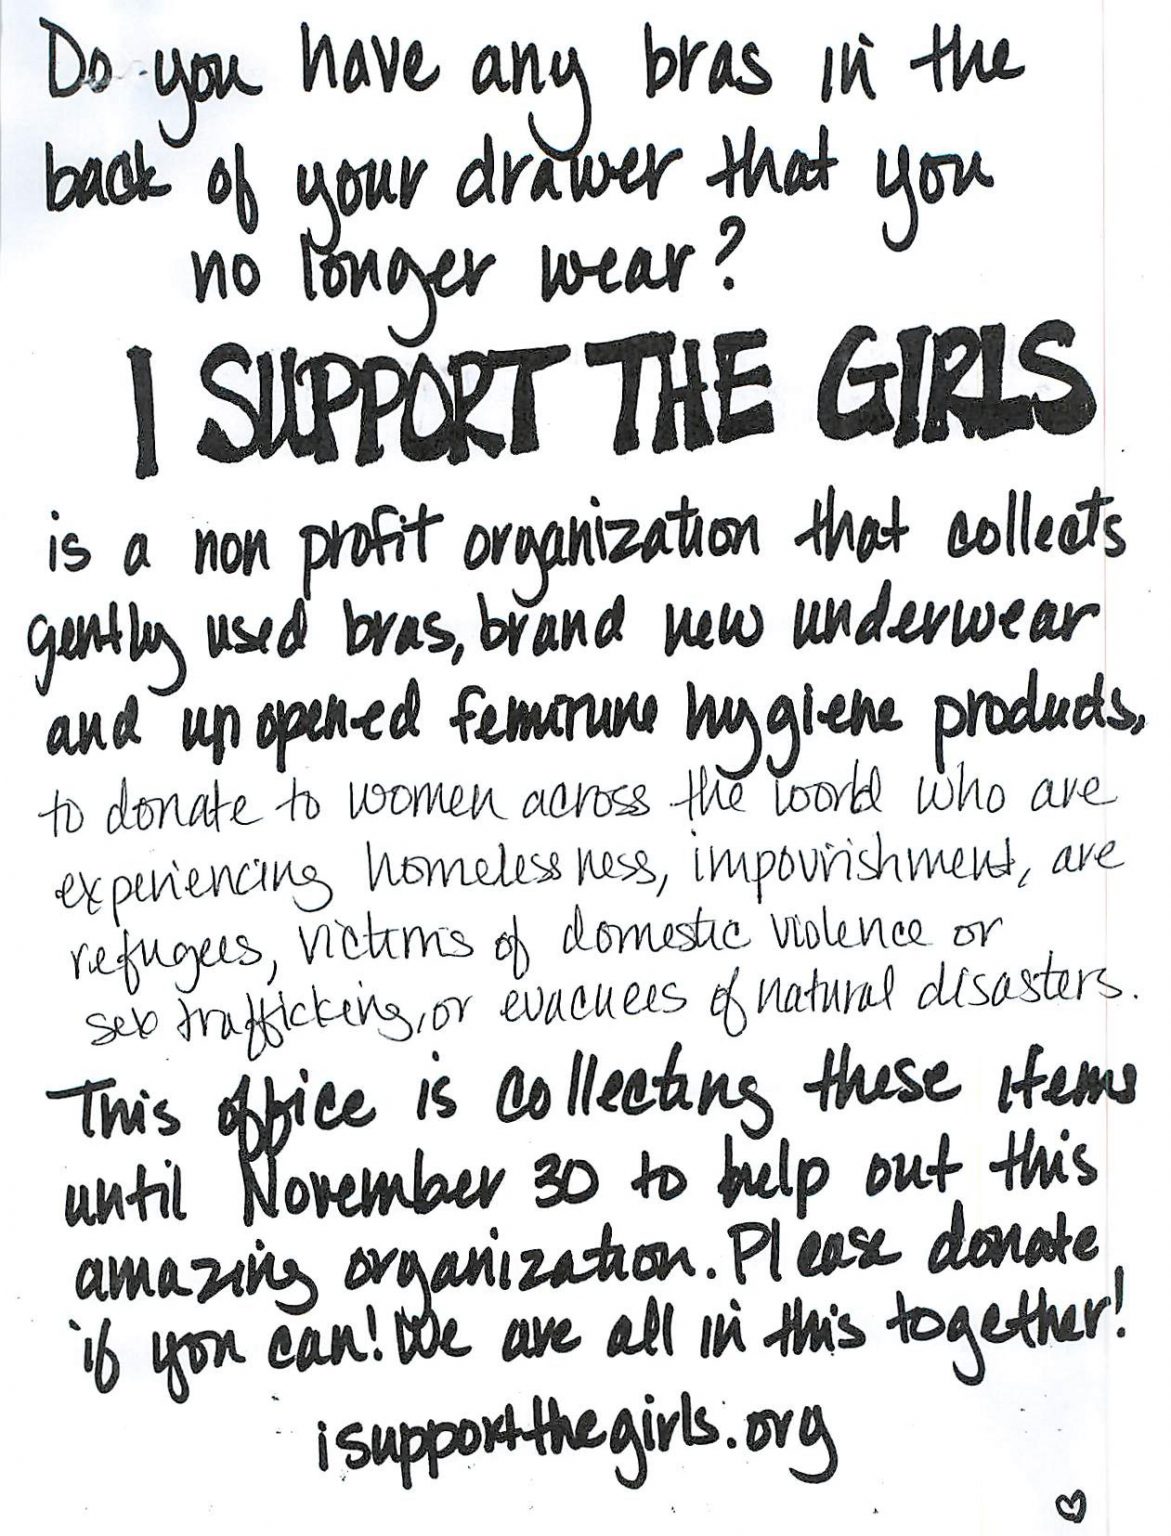 Do you have any bras in the
back of your drawer that you
no longer wear?
I SUPPORT THE GIRLS
is a non profit organization that collects
gently used bras, brand new underwear
and unopened feminine hygiene products,
to donate to women across the world who are
experiencing homelessness, impourishment, are
refugees, victims of domestic violence or
sex trafficking, or evacuees of natural disasters.
This office is collecting these items
until November 30 to help out this
amazing organization. Please donate
if you can! We are all in this together!
isupportthegirls.org